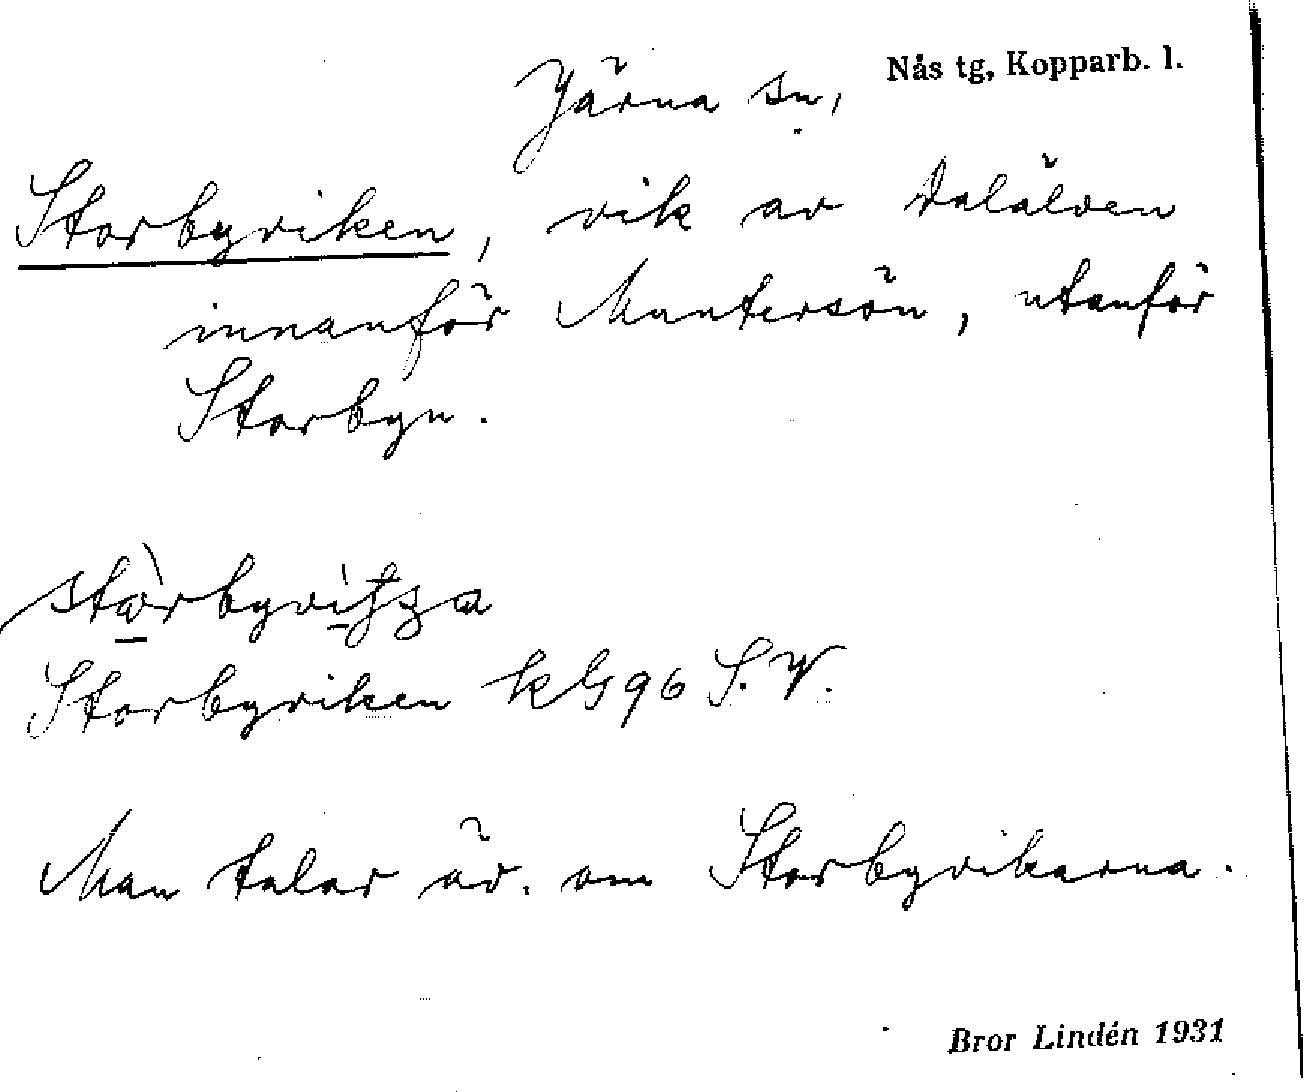 Nås tg, Kopparb. l.
Järna sn,
Storbyviken, vik av Dalälven
innanför Muntersön, utanför
Storbyn.
Storbyviken kG96 S.V.
Man talar äv. om Storbyvikarna.
Bror Lindén 1931